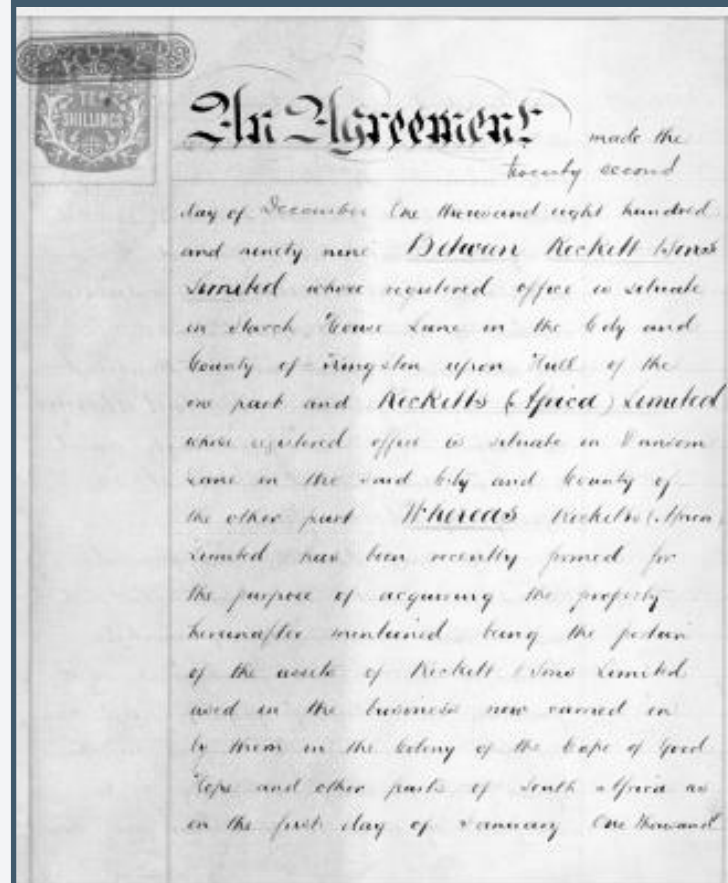 TEN
SHILLINGS
An Agreement made the
twenty second
day of December One thousand eight hundred
and ninety nine Between Reckitt & Sons
Limited whose registered office is situate
in Starch House Lane in the City and
County of Kingston upon Hull of the
one part and Reckitts (Africa) Limited
whose registered office is situate in Dansom
Lane in the said City and County of
the other part Whereas Reckitts (Africa)
Limited has been recently formed for
the purpose of acquiring the property
hereinafter mentioned being the portion
of the assets of Reckitt & Sons Limited
used in the business now carried on
by them in the Colony of the Cape of Good
Hope and other parts of South Africa as
on the first day of January One thousand